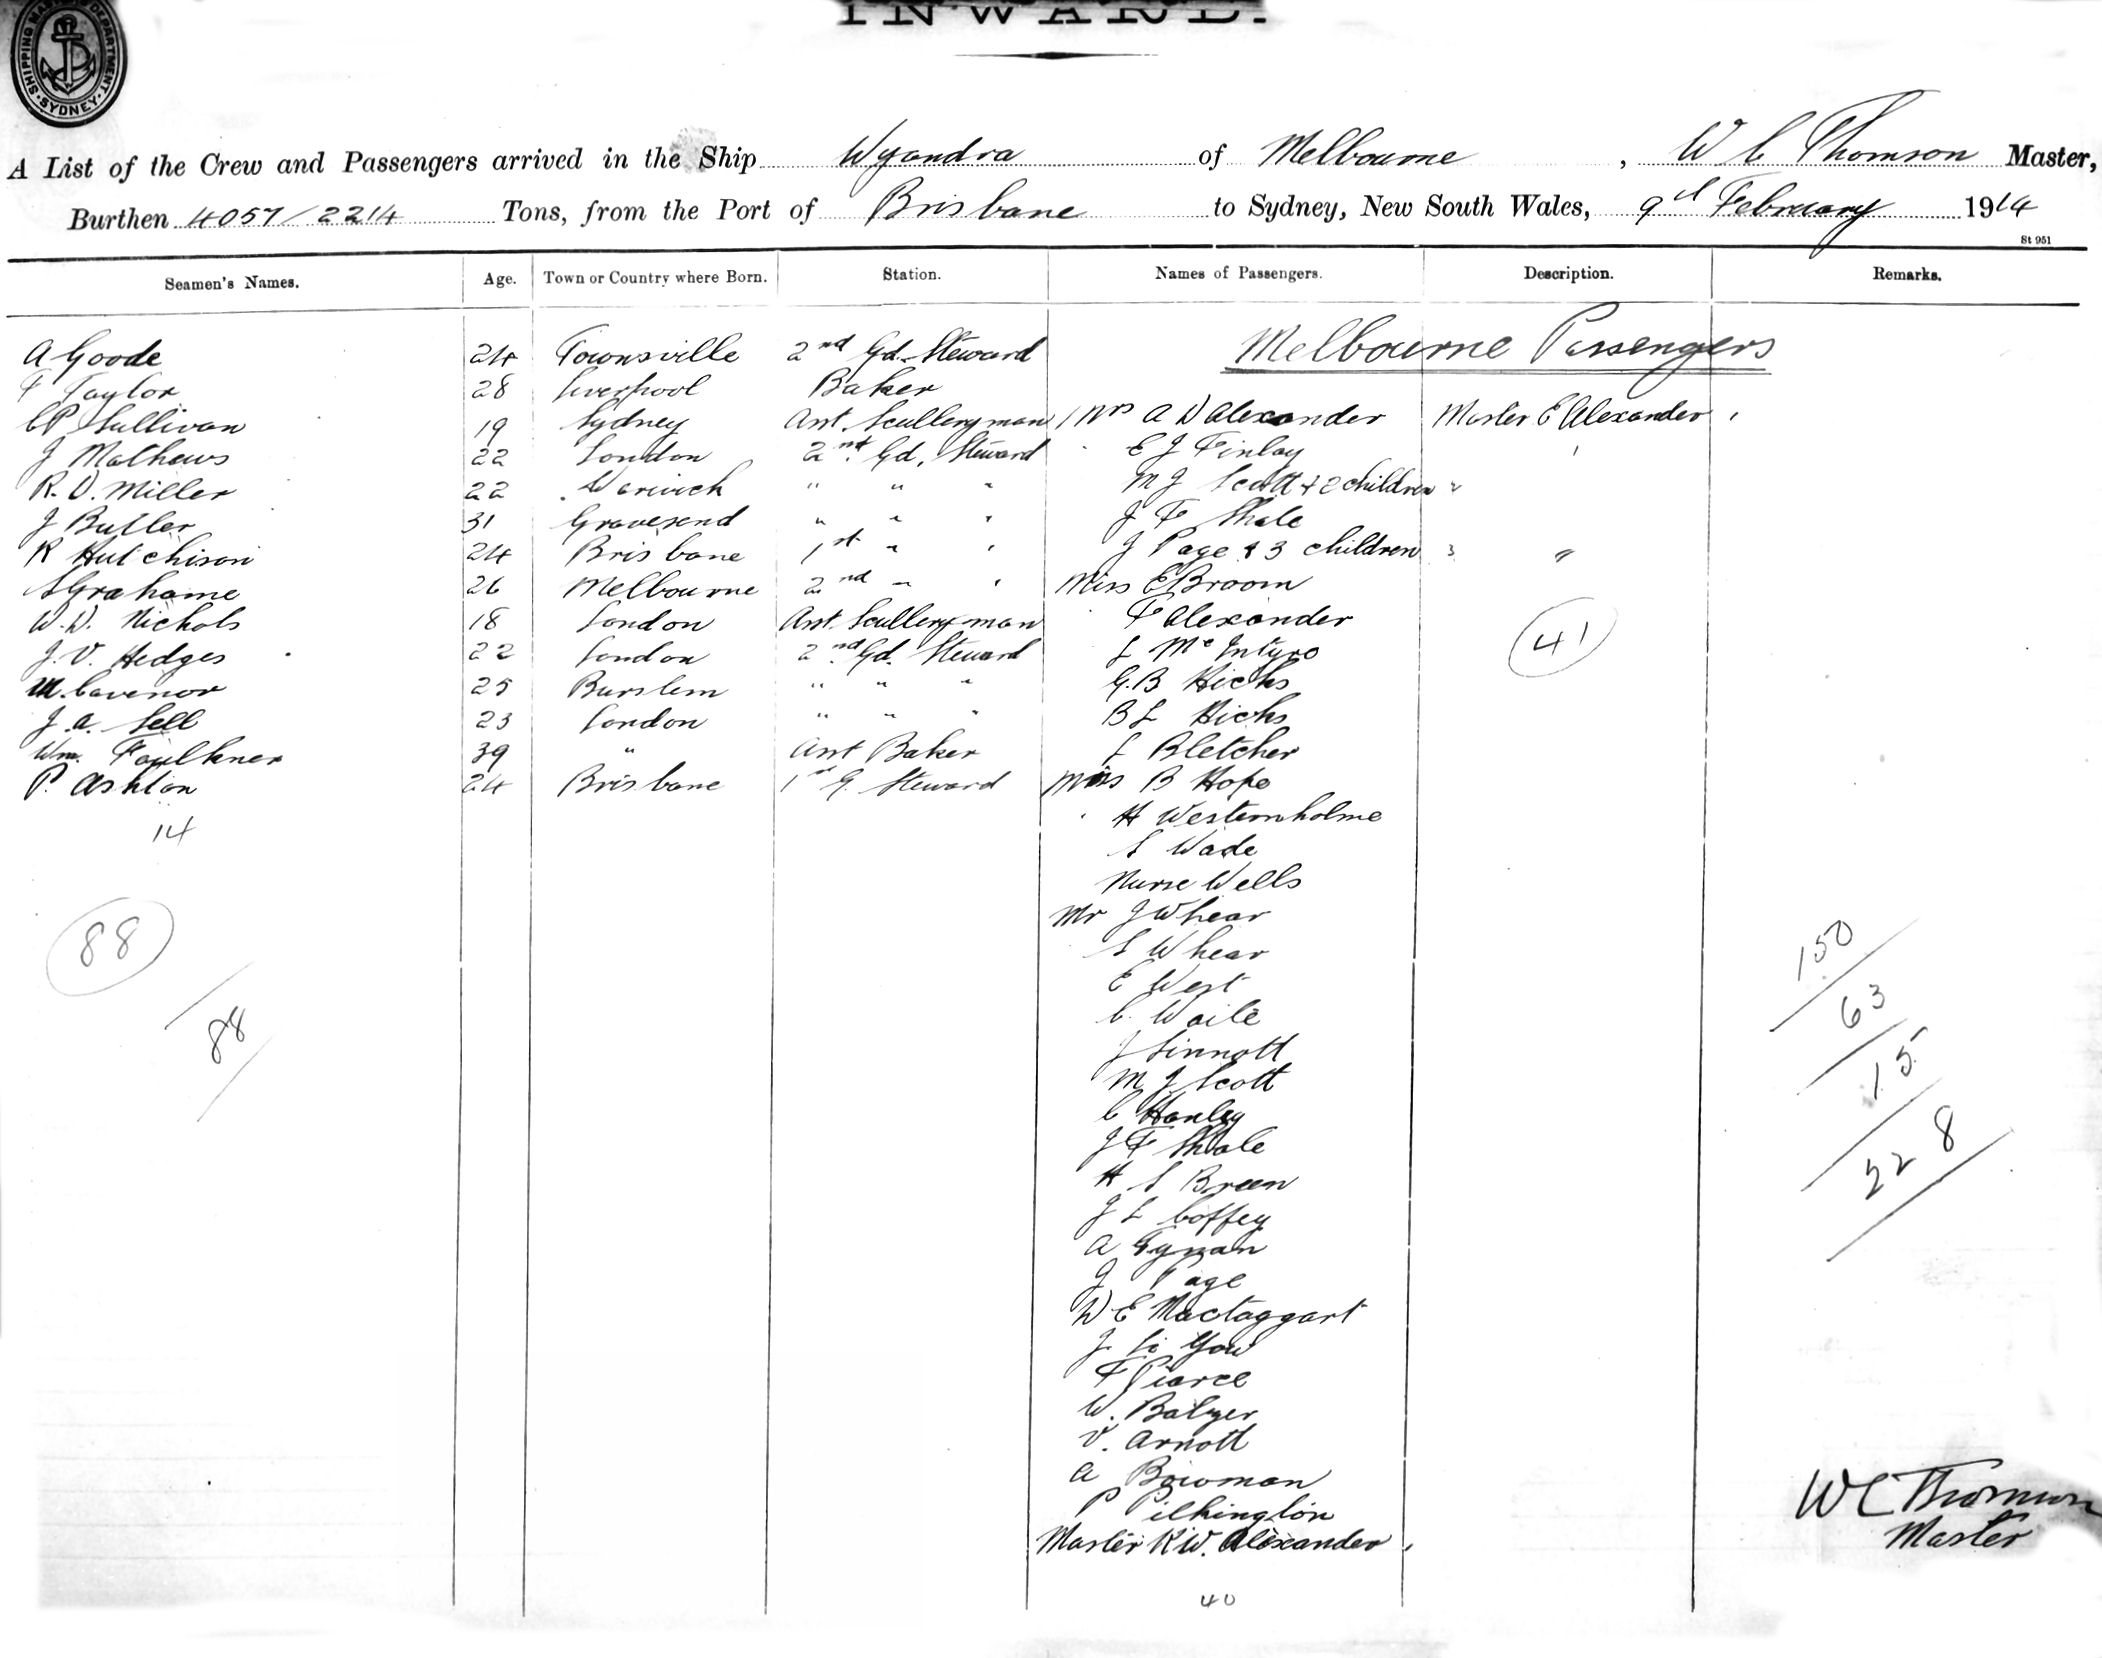 INWARD.
SHIPPING MASTER'S DEPARTMENT
SYDNEY
A List of the Crew and Passengers arrived in the Ship Wyandra of Melbourne, W C Thomson Master,
Burthen 4057/2214 Tons, from the Port of Brisbane to Sydney, New South Wales, 9th February 1914
St 951
Seamen's Names. Age. Town or Country where Born. Station. Names of Passengers. Description. Remarks.
Melbourne Passengers
A Goode 24 Townsville 2nd Gd. Steward
F Taylor 28 Liverpool Baker
CP Sullivan 19 Sydney Asst. Scullery man Mrs A D Alexander Master E Alexander
J Mathews 22 London 2nd Gd. Steward E J Finlay
R. D. Miller 22 Warwick " " " M J Scott + 2 children
J Butler 31 Gravesend " " " J F Thale
R Hutchison 24 Brisbane 1st " " J Page & 3 children "
S Grahame 26 Melbourne 2nd " " Miss E Broom
W. D. Nichols 18 London Asst. Scullery man F Alexander
J. V. Hedges 22 London 2nd Gd. Steward L McIntyre 41
M. Cavenor 25 Burslem " " " G. B Hicks
J. A. Sell 23 London " " " B L Hicks
Wm. Faulkner 39 " Asst Baker L Bletcher
P. Ashton 24 Brisbane 1st G. Steward Miss B Hope
14 H Westernholme
S Wade
Nurse Wells
88 Mr J Whear
S Whear 150
E West
88 C. Waite 63
J Sinnott
M J Scott 15
C Hanley
J F Thale 228
H S Breen
J L Coffey
A Eynan
J Page
D E Mactaggart
J Li You
F Pearce
W. Balzer
V. Arnott
A Bowman
P Pilkington
Master K W. Alexander
40
W C Thomson
Master